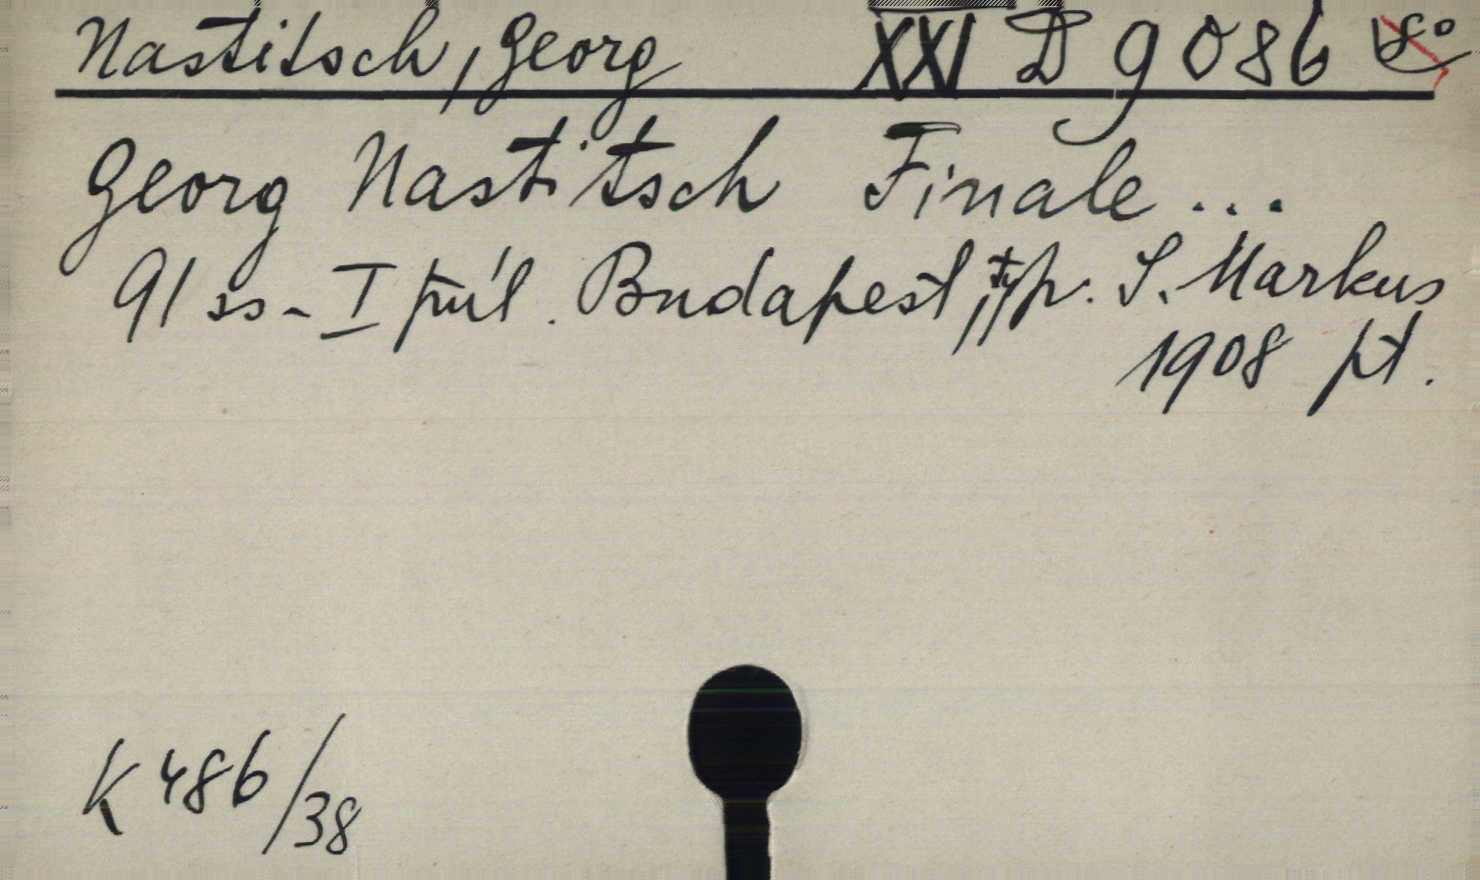 Nastitsch, Georg XXI D 9086 8°
Georg Nastitsch Finale...
91 ss - I příl. Budapest, typ. S. Markus
1908 pt.
K 486/38